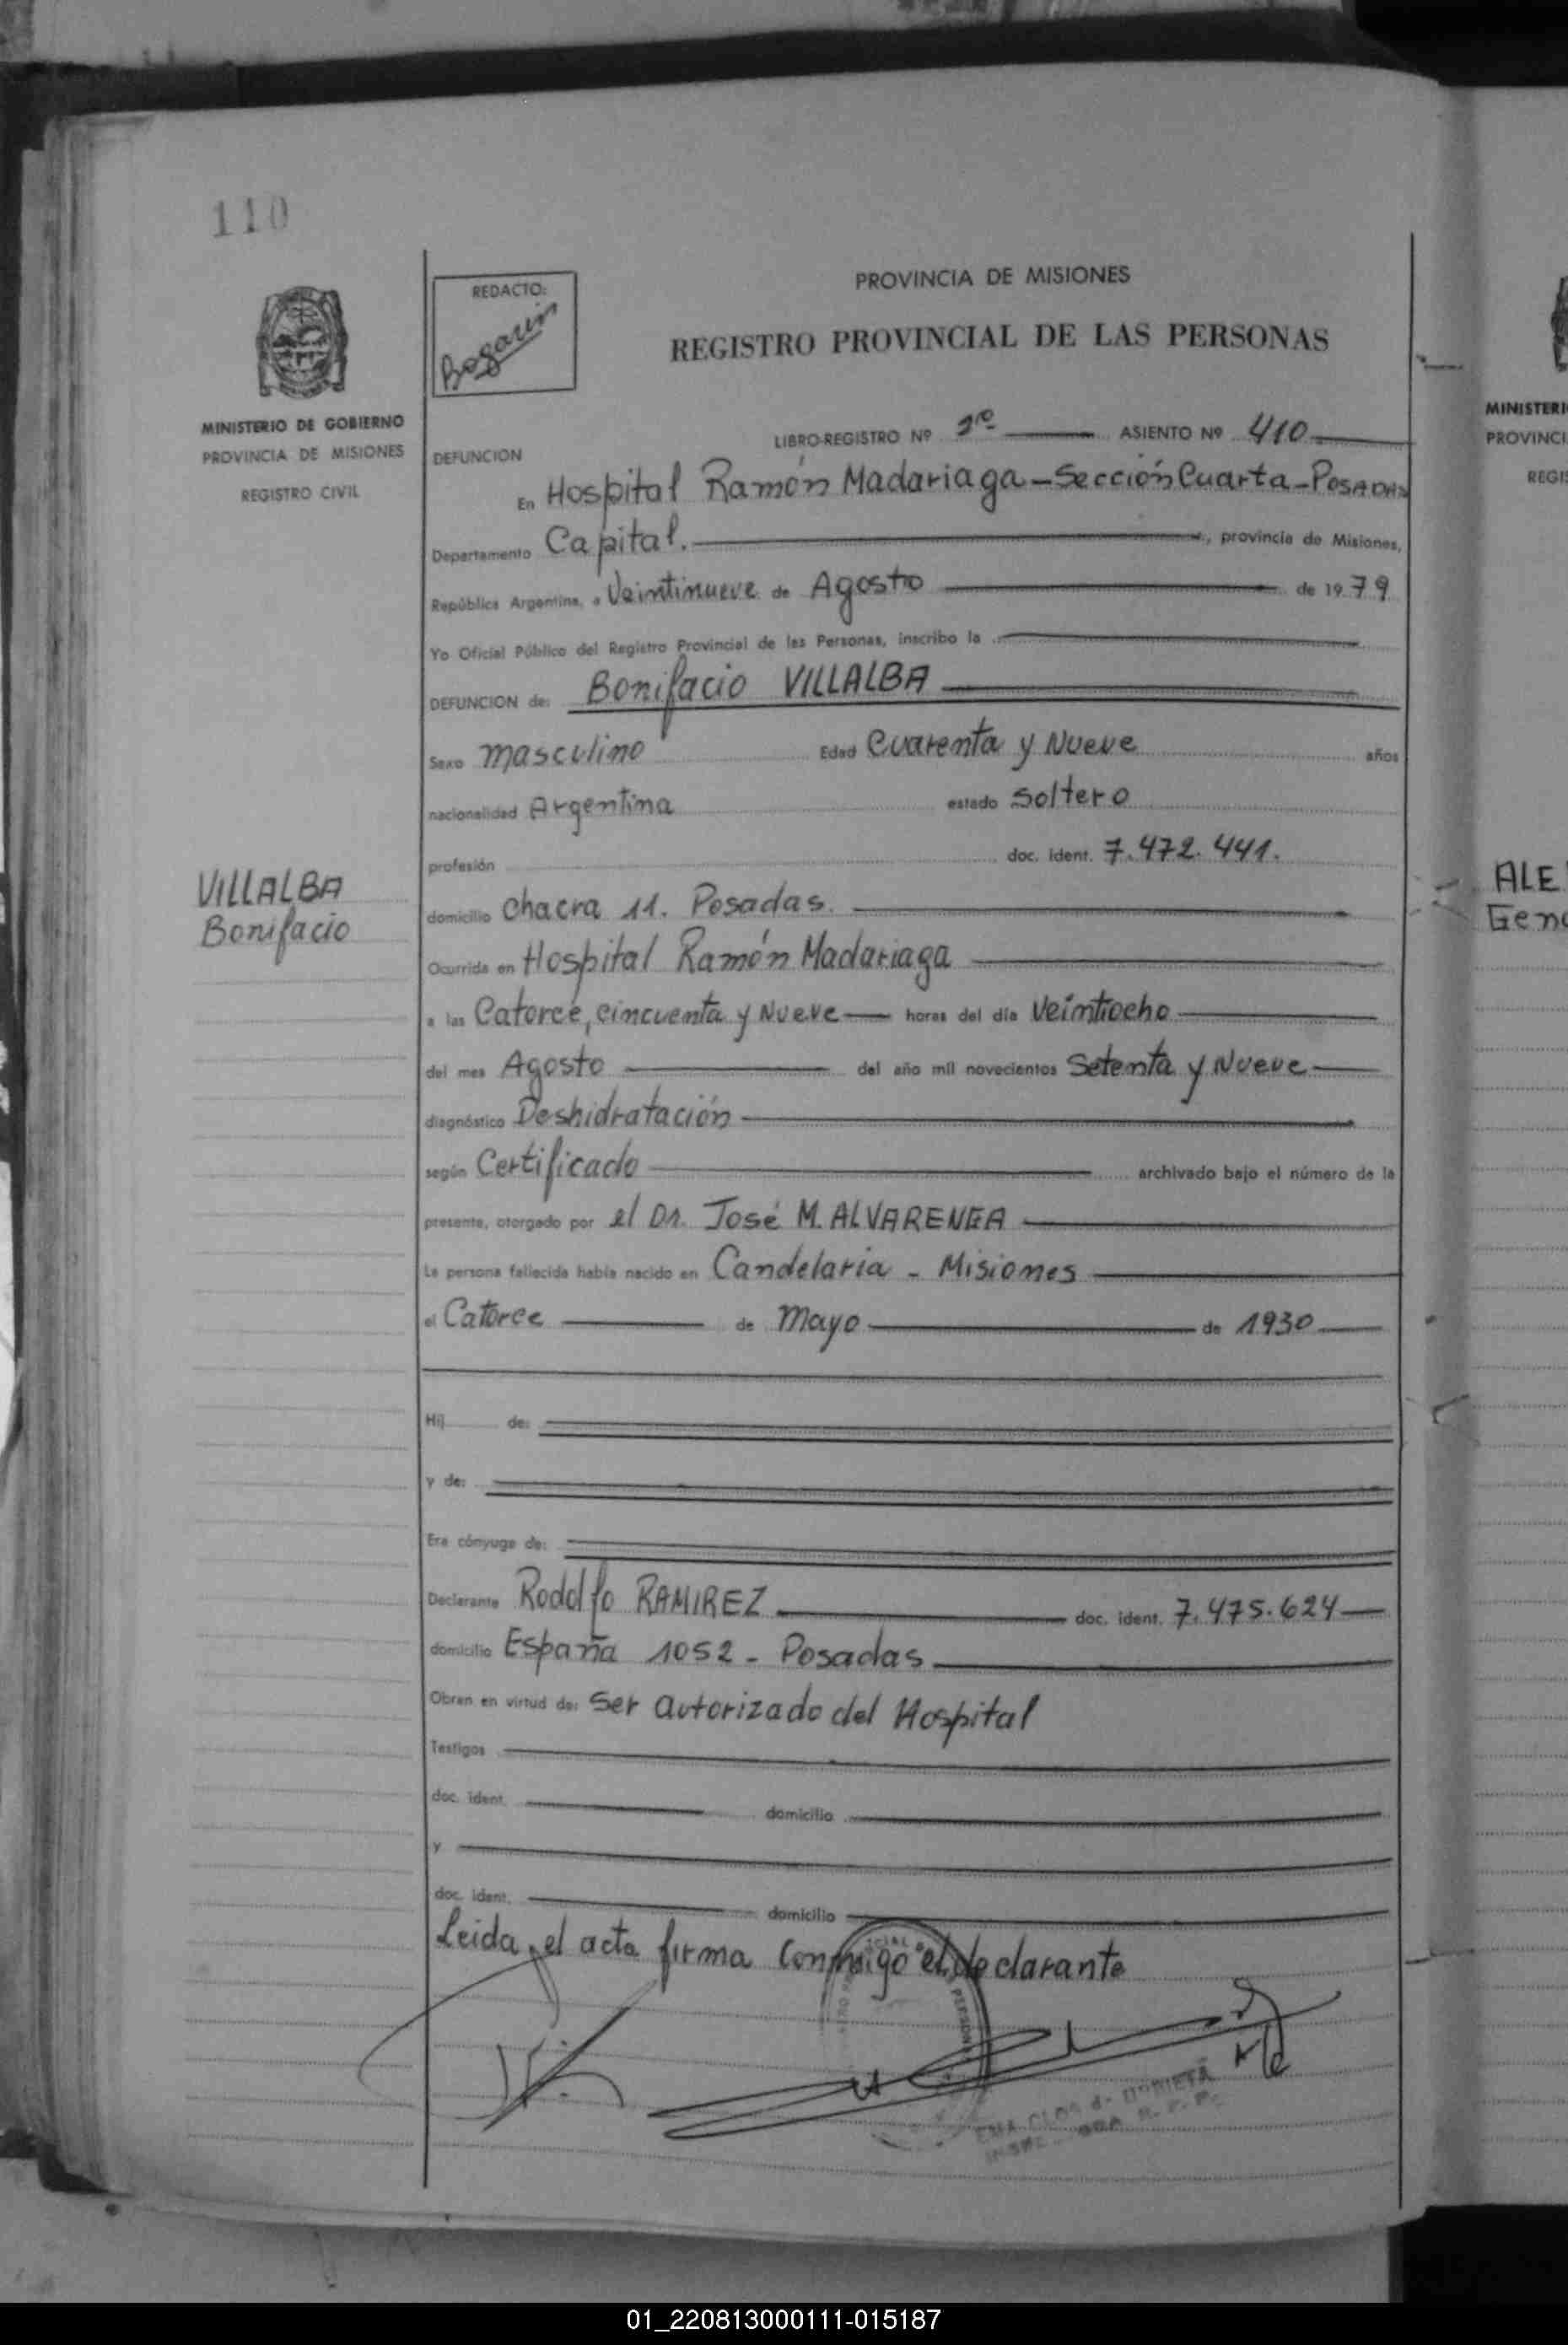 110
REDACTO:
Bogarin
PROVINCIA DE MISIONES
REGISTRO PROVINCIAL DE LAS PERSONAS
MINISTERIO DE GOBIERNO
PROVINCIA DE MISIONES
REGISTRO CIVIL
LIBRO-REGISTRO Nº 2º ASIENTO Nº 410
DEFUNCION
En Hospital Ramón Madariaga - Sección Cuarta - POSADAS
Departamento Capital. , provincia de Misiones,
República Argentina, a Veintinueve de Agosto de 1979
Yo Oficial Público del Registro Provincial de las Personas, inscribo la
DEFUNCION de: Bonifacio VILLALBA
Sexo masculino Edad Cuarenta y Nueve años
nacionalidad Argentina estado Soltero
profesión doc. ident. 7.472.441.
VILLALBA
Bonifacio
domicilio Chacra 11. Posadas.
Ocurrida en Hospital Ramón Madariaga
a las Catorce, cincuenta y Nueve horas del día Veintiocho
del mes Agosto del año mil novecientos Setenta y Nueve
diagnóstico Deshidratación
según Certificado archivado bajo el número de la
presente, otorgado por el Dr. José M. ALVARENGA
La persona fallecida había nacido en Candelaria - Misiones
el Catorce de Mayo de 1930
Hij de:
y de:
Era cónyuge de:
Declarante Rodolfo RAMIREZ doc. ident. 7.475.624
domicilio España 1052 - Posadas
Obran en virtud de: Ser autorizado del Hospital
Testigos
doc. ident. domicilio
y
doc. ident. domicilio
Leida el acta firma conmigo el declarante
MINISTERI
PROVINCI
REGIS
ALE
Gen
01_220813000111-015187